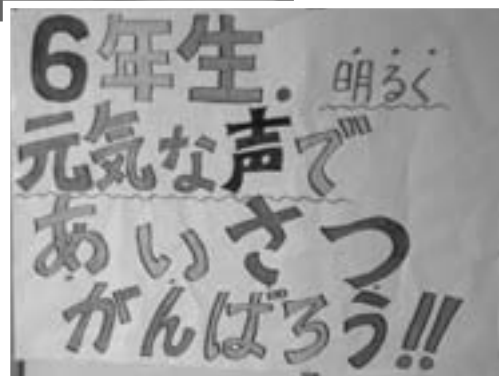 6年生.
明るく
元気な声で
あいさつ
がんばろう!!